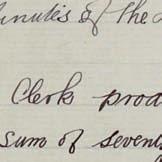 Minutes of the
Clerk prod
Sum of sevent